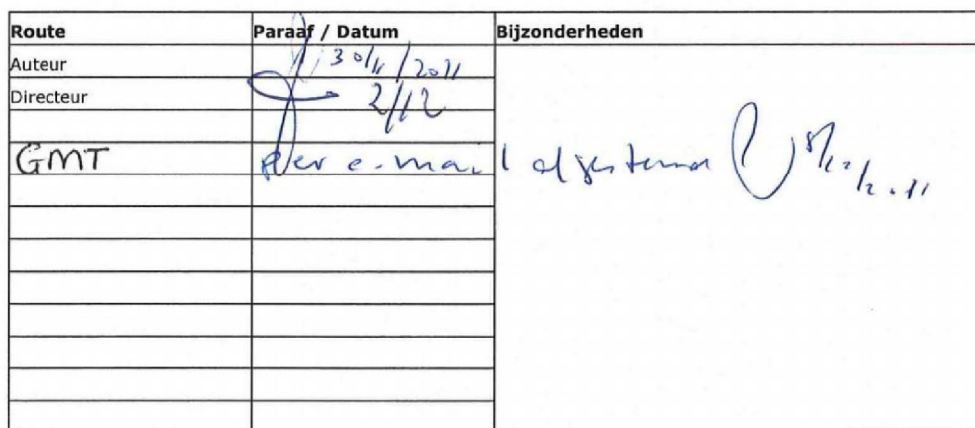 Route Paraaf / Datum Bijzonderheden
Auteur 30/11/2011
Directeur 2/12
GMT per e-mail afgestemd 8/12/2011